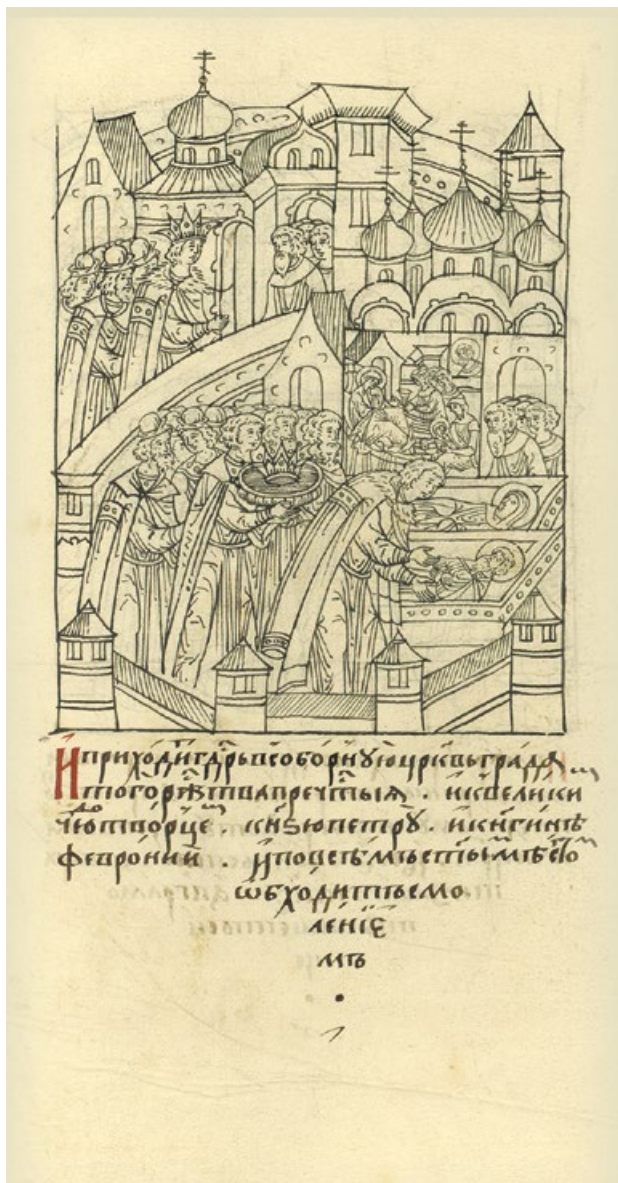 И приходиⷮ гдⷭ҇рь всоборнꙋю црквь градѧ
тⷭ҇ого рѫⷭ҇тва преⷱ҇тыѧ . и к великиⷨ
чюⷣотворцеⷨ . кнѕю петрꙋ . и кнгинѣ
февронии . и по всѣмъ ст҃ымъ мѣстоⷨ
ѡбходитъ с мо
лениє
мъ